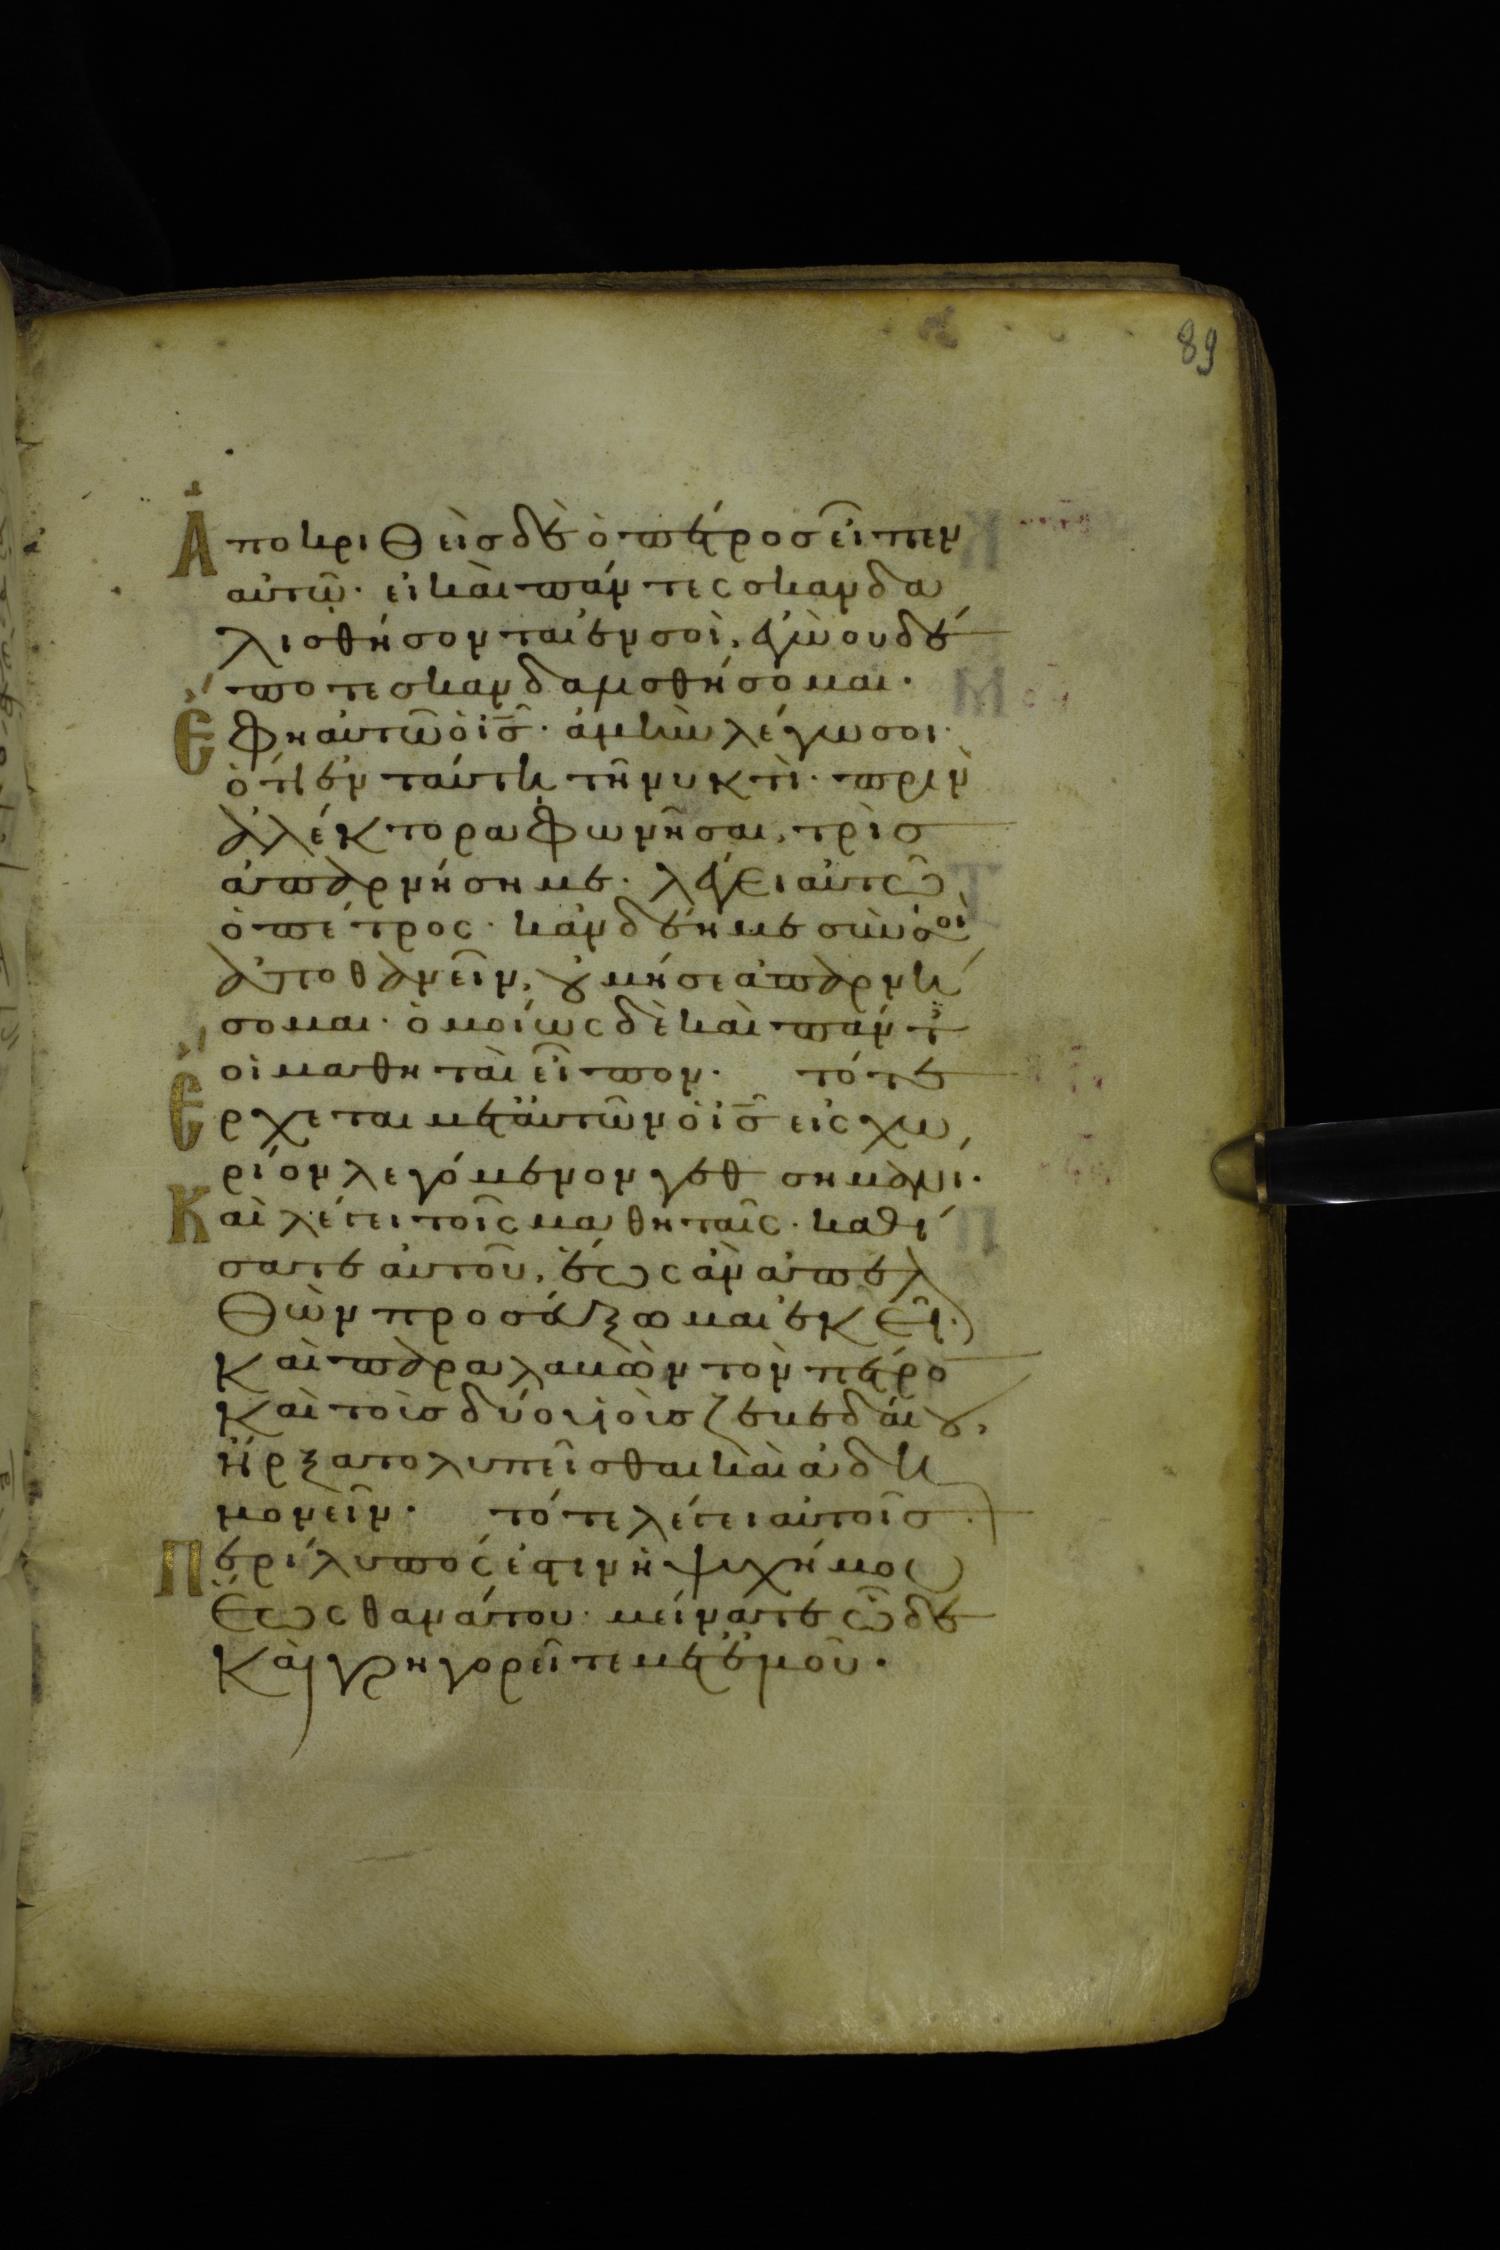 89
Ἀποκριθεὶς δὲ ὁ πέτρος εἶπεν
αὐτῶ· εἰ καὶ πάντες σκανδα
λισθήσονται ἐν σοὶ, ἐγὼ ουδέ
ποτε σκανδαλισθήσομαι·
Ἔφη αὐτῶ ὁ ις̅· ἀμὴν λέγω σοι·
ὅτι ἐν ταύτη τῆ νυκτὶ· πρὶν
ἀλέκτορα φωνῆσαι, τρὶσ
ἀπαρνήση με· λέγει αὐτῶ
ὁ πέτρος· κἂν δέη με σὺν σοὶ
ἀποθανεῖν, οὐ μή σε ἀπαρνή
σομαι· ὁμοίως δὲ καὶ πάντ
οἱ μαθηταὶ εἶπον· τότε
Ἔρχεται μετ αὐτῶν ὁ ις̅ εἰς χω
ρίον λεγόμενον γεθσημανί·
Καὶ λέγει τοῖς μαθηταῖς· καθί
σατε αὐτοῦ, ἕως ἂν ἀπελ
θὼν προσεύξωμαι ἐκεῖ·
καὶ παραλαβὼν τὸν πέτρο
καὶ τοὺσ δύο υἱοὺσ ζεβεδαίου,
ἤρξατο λυπεῖσθαι καὶ ἀδη
μονεῖν· τότε λέγει αὐτοῖσ·
Περίλυπός ἐστιν ἡ ψυχή μου
ἕως θανάτου· μείνατε ὧδε
καὶ γρηγορεῖτε μετ ἐμοῦ·